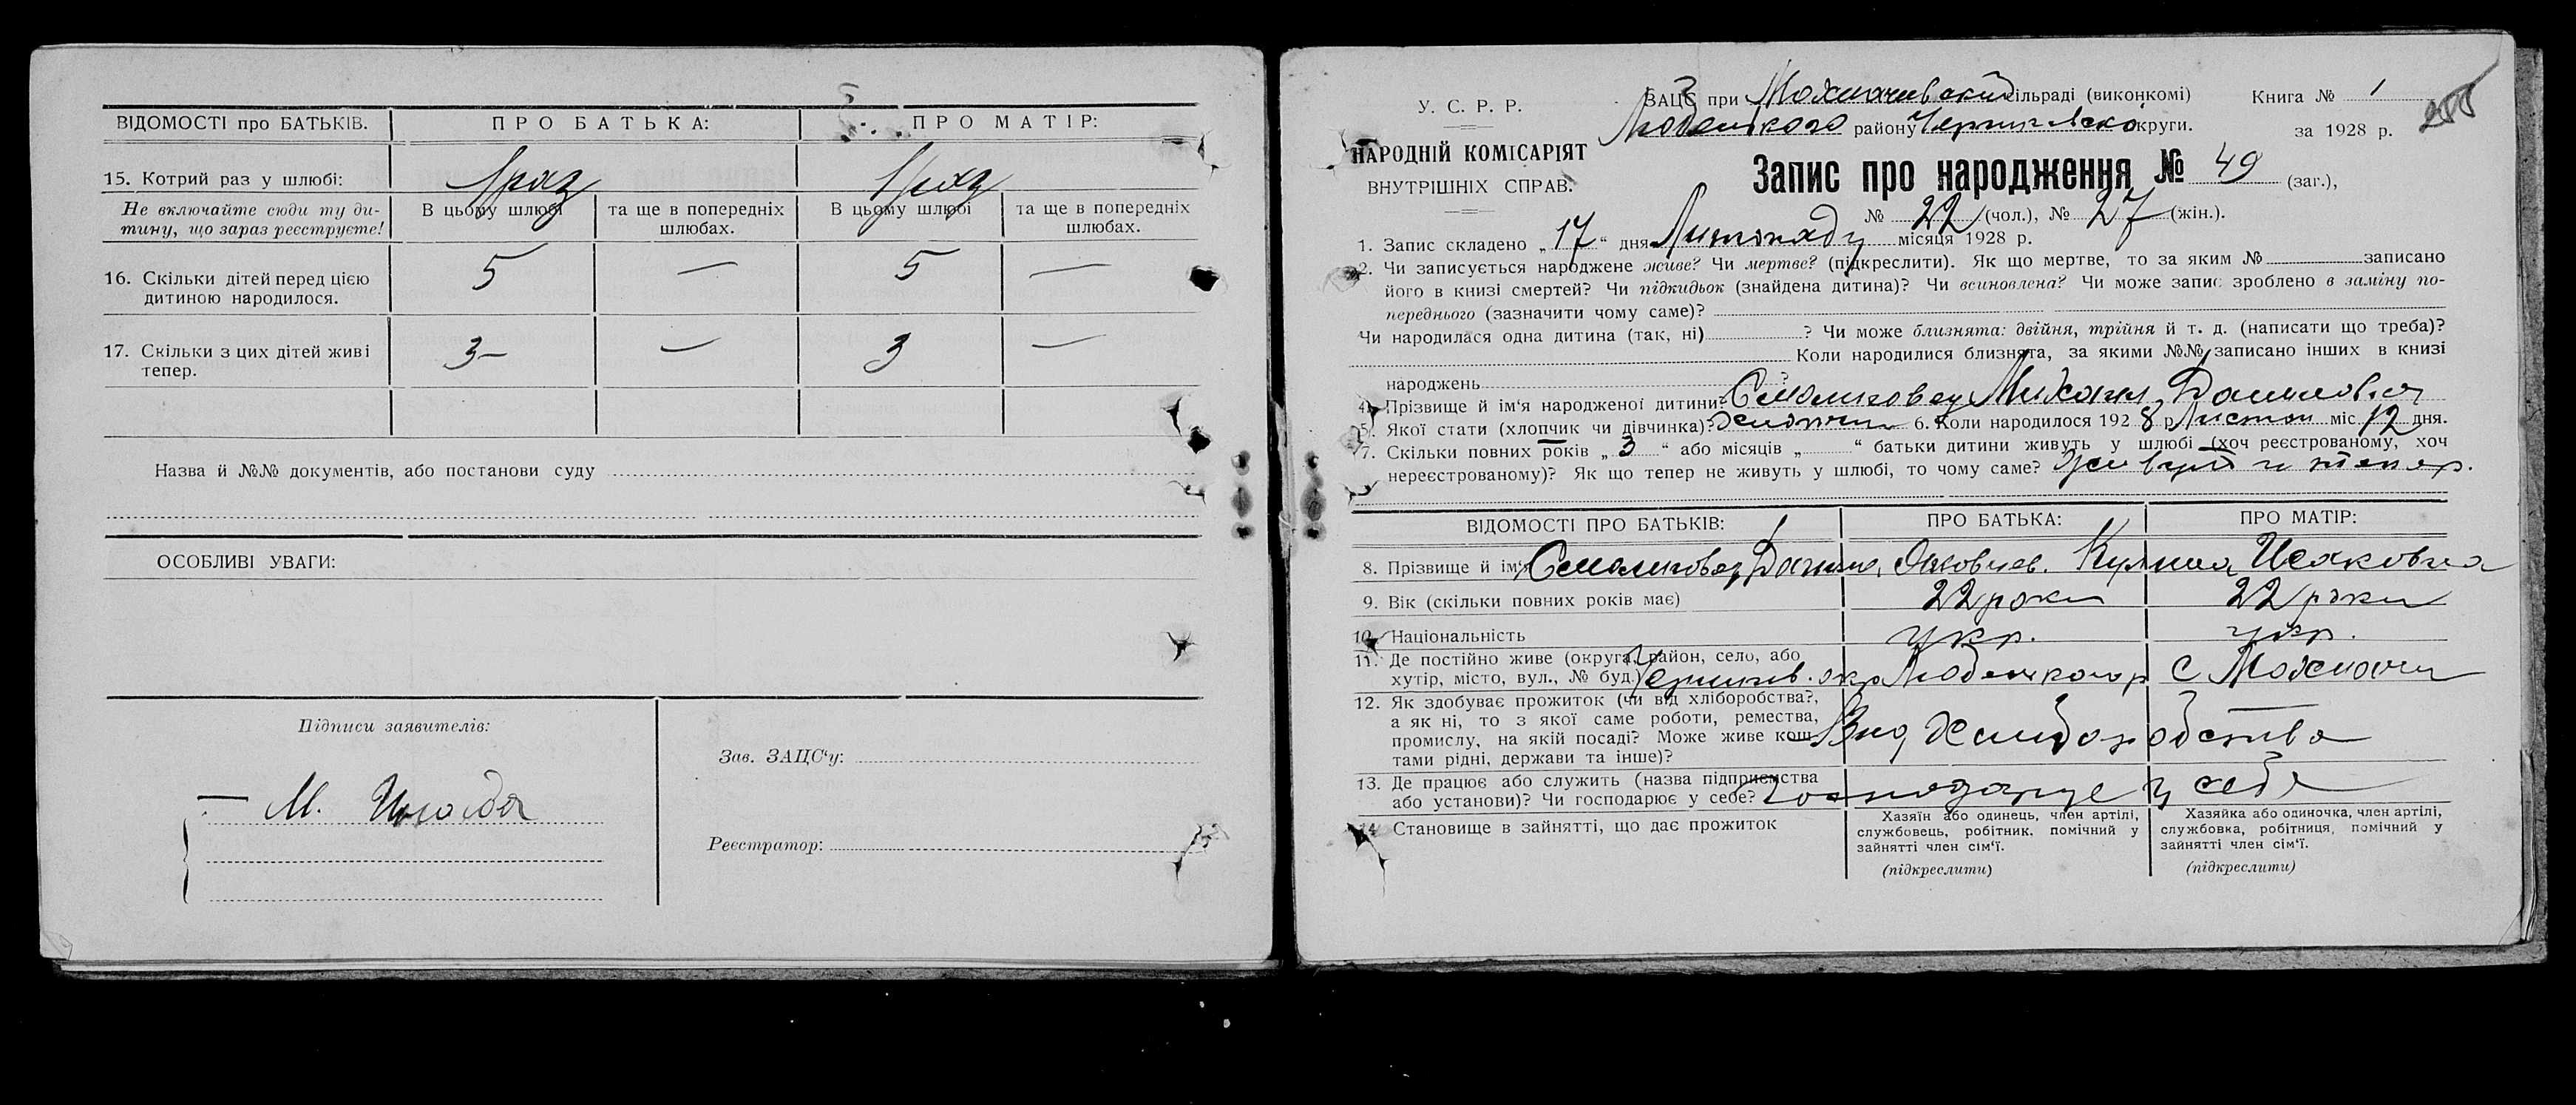 ВІДОМОСТІ про БАТЬКІВ. ПРО БАТЬКА: ПРО МАТІР:
15. Котрий раз у шлюбі: 1 раз 1 раз
Не включайте сюди ту ди-
тину, що зараз реєструєте!
В цьому шлюбі та ще в попередніх шлюбах. В цьому шлюбі та ще в попередніх шлюбах.
16. Скільки дітей перед цією
дитиною народилося. 5 — 5 —
17. Скільки з цих дітей живі
тепер. 3 — — 3 —
Назва й №№ документів, або постанови суду
ОСОБЛИВІ УВАГИ:
Підписи заявителів:
М.
Зав. ЗАЦС‘у:
Реєстратор:
У. С. Р. Р.
НАРОДНІЙ КОМІСАРІЯТ
ВНУТРІШНІХ СПРАВ.
ЗАЦС при Мохначевской сільраді (виконкомі)
Любецкого району Чернигівско округи.
Книга № 1
за 1928 р.
Запис про народження № 49 (заг.),
№ 22 (чол.), № 27 (жін.).
1. Запис складено „17“ дня Листопаду місяця 1928 р.
2. Чи записується народжене живе? Чи мертве? (підкреслити). Як що мертве, то за яким № записано
його в книзі смертей? Чи підкидьок (знайдена дитина)? Чи всиновлена? Чи може запис зроблено в заміну по-
переднього (зазначити чому саме)?
Чи народилася одна дитина (так, ні) ? Чи може близнята: двійня, трійня й т. д. (написати що треба)?
Коли народилися близнята, за якими №№ записано інших в книзі
народжень
4. Прізвище й ім‘я народженої дитини? Михаил Данилович
5. Якої стати (хлопчик чи дівчинка)? Хлопчик 6. Коли народилося 1928 р. Листоп міс. 12 дня.
7. Скільки повних років „3“ або місяців „ “ батьки дитини живуть у шлюбі (хоч реєстрованому, хоч
нереєстрованому)? Як що тепер не живуть у шлюбі, то чому саме? Живут и тепер.
ВІДОМОСТІ ПРО БАТЬКІВ: ПРО БАТЬКА: ПРО МАТІР:
8. Прізвище й ім‘я Данило Яковлев. Исаковна
9. Вік (скільки повних років має) 22 роки 22 роки
10. Національність укр. укр.
11. Де постійно живе (округа, район, село, або
хутір, місто, вул., № буд.) Чернигів. окр Любецкого р С Мохначи
12. Як здобуває прожиток (чи від хліборобства?,
а як ні, то з якої саме роботи, ремества,
промислу, на якій посаді? Може живе кош-
тами рідні, держави та інше)? Вид Хлиборобства
13. Де працює або служить (назва підприємства
або установи)? Чи господарює у себе? Господарує у себе
14. Становище в зайнятті, що дає прожиток
Хазяїн або одинець, член артілі,
службовець, робітник, помічний у
зайнятті член сім‘ї.
(підкреслити)
Хазяйка або одиночка, член артілі,
службовка, робітниця, помічний у
зайнятті член сім‘ї.
(підкреслити)